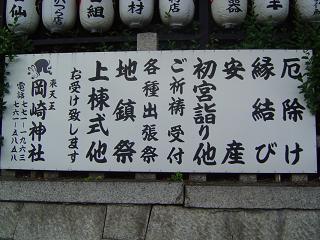 厄除け
縁結び
安産
初宮詣り他
ご祈祷受付
各種出張祭
地鎮祭
上棟式他
お受け致します
東天王
岡崎神社
電話 七七一-一九六三
七六一-五八五八